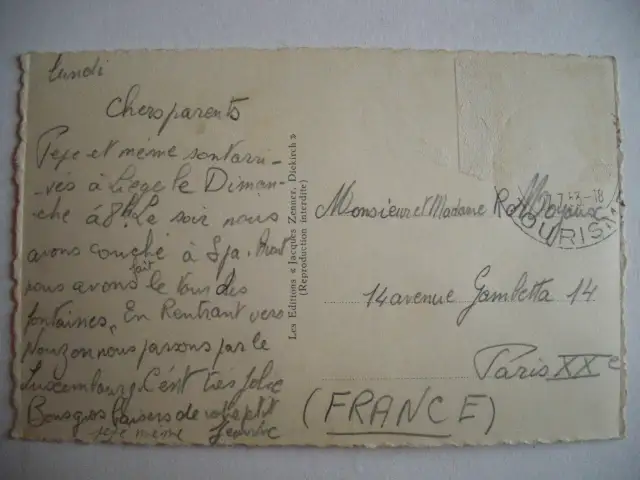 lundi
Chers parents
Pepe et mémé sont arri-
-vés à Liege le Diman-
che à 8h. Le soir nous
avons couché à Spa.
nous avons fait le tour des
fontaines. En Rentrant vers
nous passons par le
Luxembourg. C'est très jolie
Bons gros baisers de votre ptit
pepe mémé
Les Editions « Jacques Zenner, Diekirch »
(Reproduction interdite)
Monsieur et Madame
14 avenue Gambetta 14
Paris XXe
(FRANCE)
OURIS